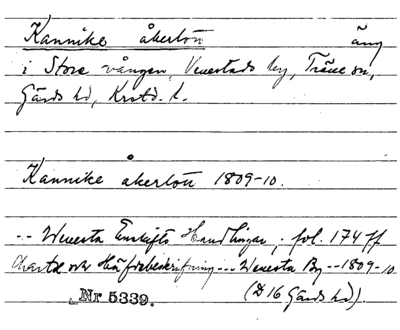 Kannike åkerlott äng
i Stora vången, Venestads by, Träne sn,
Gärds hd, Krstd. l.
Kannike åkerlott 1809-10.
-- Wenesta Enskifts Handlingar, fol. 174 ff
Charta och Häfdebeskrifning --- Wenesta By -- 1809-10
Nr 5339. (D 16 Gärds hd).